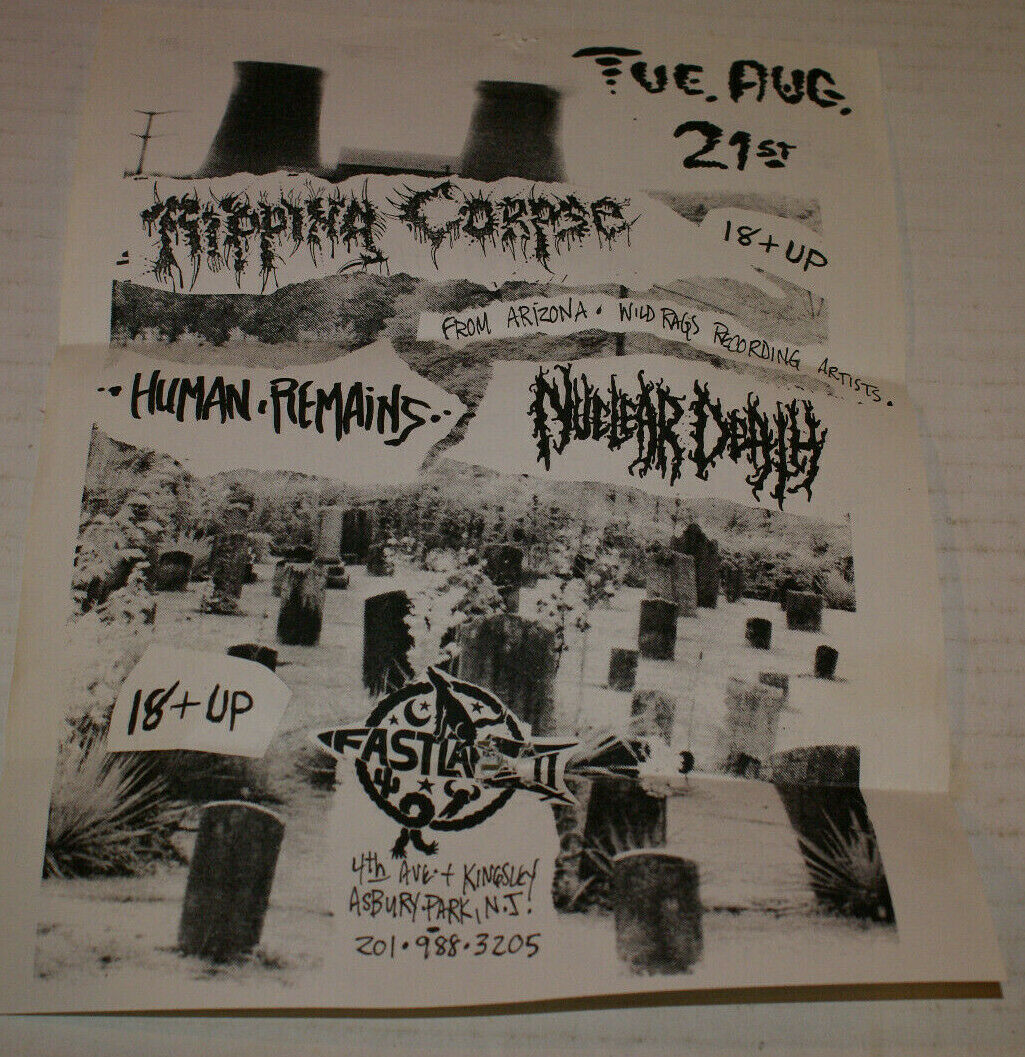 TUE. AUG.
21ST
RIPPING CORPSE
18 + UP
FROM ARIZONA • WILD RAGS RECORDING ARTISTS.
•• HUMAN • REMAINS ••
NUCLEAR DEATH
18 + UP
FASTLANE II
4th AVE. + KINGSLEY
ASBURY • PARK, N.J.
201 • 988 • 3205